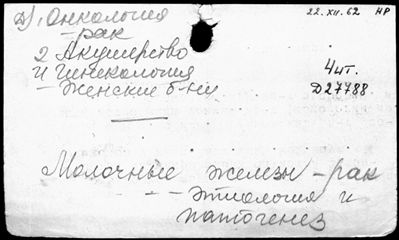 1. Онкология
22.XII.62 НР
- рак
2 Акушерство
и гинекология
Чит.
- женские б-ни
Д27788.
Молочные железы - рак
- - этиология и
патогенез